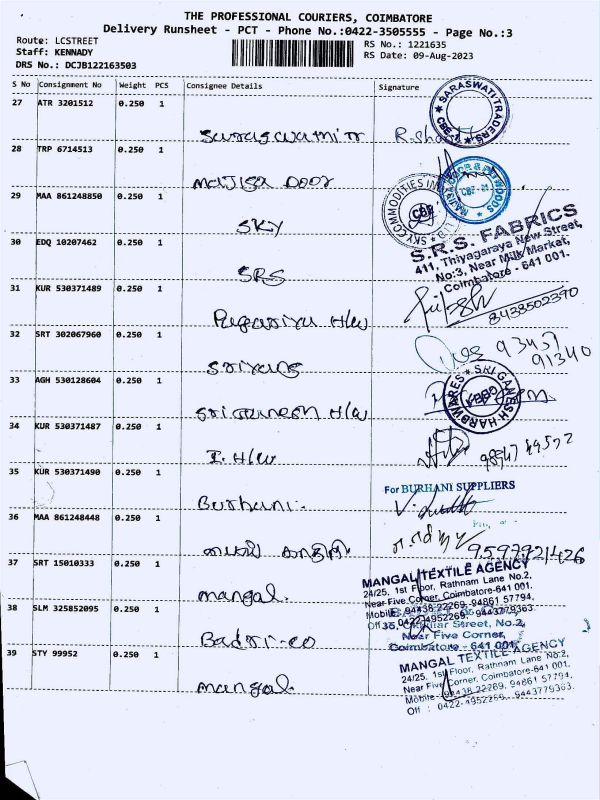 THE PROFESSIONAL COURIERS, COIMBATORE
Delivery Runsheet - PCT - Phone No.:0422-3505555 - Page No.:3
Route: LCSTREET
RS No.: 1221635
Staff: KENNADY
RS Date: 09-Aug-2023
DRS No.: DCJB122163503
S No Consignment No Weight PCS Consignee Details Signature
27 ATR 3201512 0.250 1
SARASWATI TRADERS
CBE-1
28 TRP 6714513 0.250 1
Majisa Door
29 MAA 861248850 0.250 1
SKY
SKY COMMODITIES
CBE
30 EDQ 10207462 0.250 1
SRS
S.R.S. FABRICS
411, Thiyagaraya New Street,
No:3, Near Milk Market,
Coimbatore - 641 001.
31 KUR 530371489 0.250 1
H/W
8438502390
32 SRT 302067960 0.250 1
93457
91340
33 AGH 530128604 0.250 1
Sri Ganesh H/W
SRI GANESH HARDWARES
34 KUR 530371487 0.250 1
I. H/W
35 KUR 530371490 0.250 1
Burhani.
For BURHANI SUPPLIERS
36 MAA 861248448 0.250 1
9597921426
37 SRT 15010333 0.250 1
mangal.
MANGAL TEXTILE AGENCY
24/25, 1st Floor, Rathnam Lane No.2,
Near Five Corner, Coimbatore-641 001.
Mobile: 94438 22269, 94861 57794,
Off : 0422-4952269, 9443779363.
38 SLM 325852095 0.250 1
Badri-co
Street, No.2,
Near Five Corner,
Coimbatore - 641 001.
39 STY 99952 0.250 1
mangal.
MANGAL TEXTILE AGENCY
24/25, 1st Floor, Rathnam Lane No.2,
Near Five Corner, Coimbatore-641 001.
Mobile : 94438 22269, 94861 57794,
Off : 0422-4952269, 9443779363.